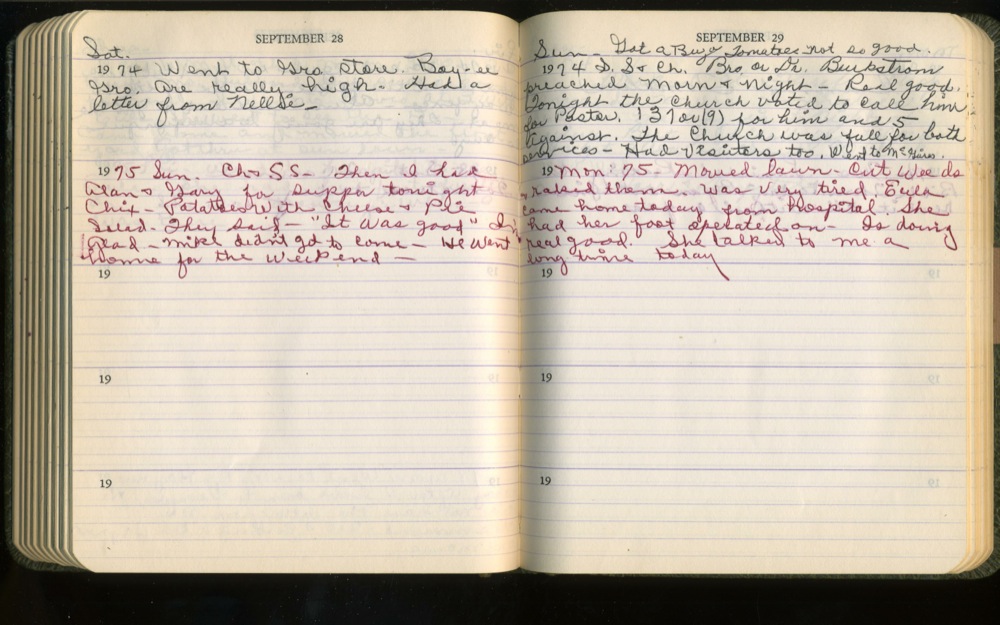 SEPTEMBER 28
Sat.
1974 Went to Gro store. Boy-ee
Gro. are really high. Had a
letter from Nellie -
1975 Sun. Ch & SS - Then I had
Alan & Gary for supper tonight
Chix - Potatoes with Cheese & Pie
Salad. They said - "It was good" I'm
glad - Mike didn't get to come - He went
home for the weekend -
19
19
19
SEPTEMBER 29
Sun - Got a Bug Tomatoes not so good.
1974 S. S & Ch. Bro. or Dr. Burkstrom
preached Morn & night - Real good.
Tonight the Church voted to call him
for Pastor. 137 or (9) for him and 5
Against. The Church was full for both
services - Had Visitors too. Went to
19 Mon. 75 - Mowed lawn - Cut weeds
raked them. Was very tired
came home today from Hospital. She
had her foot operated on - Is doing
real good. She talked to me a
long time today
19
19
19